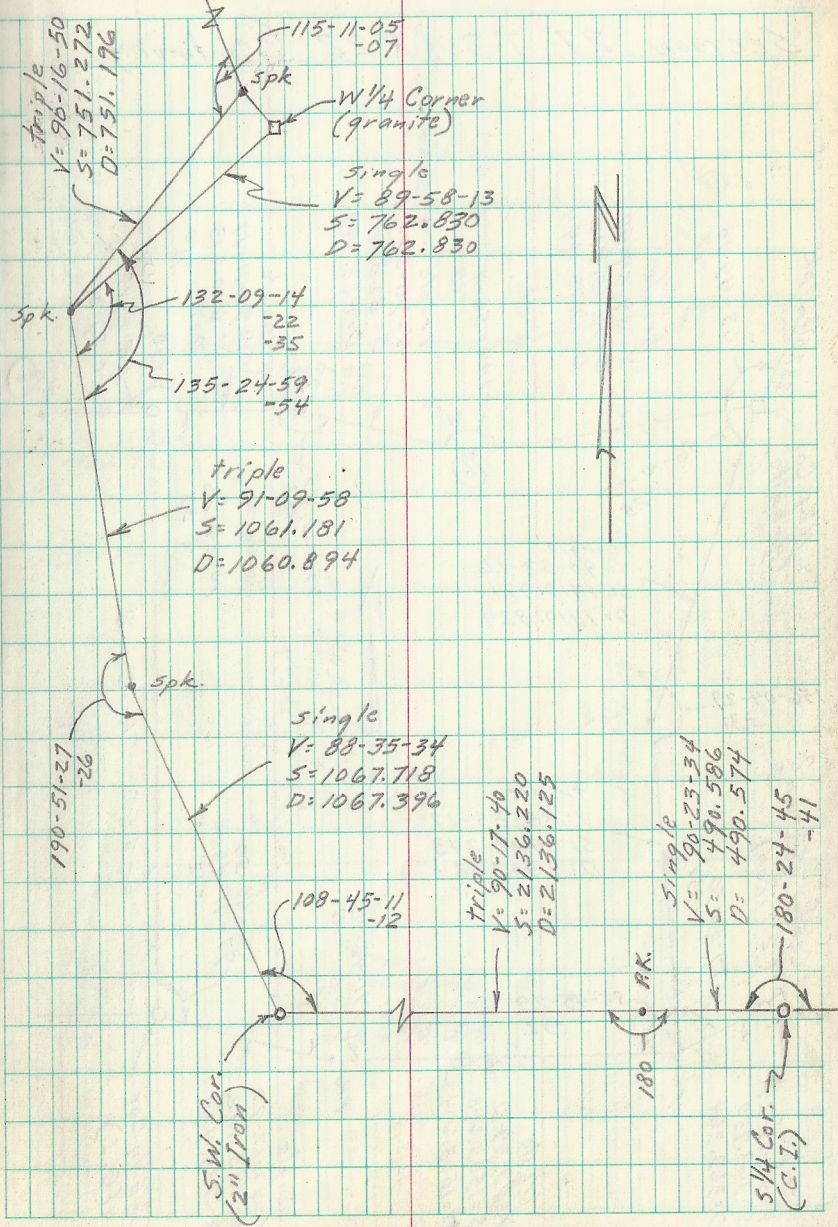 115-11-05
-07
triple
V= 90-16-50
S= 751.272
D= 751.196
spk
W 1/4 Corner
(granite)
single
V= 89-58-13
S= 762.830
D= 762.830
N
spk.
132-09-14
-22
-35
135-24-59
-54
triple
V= 91-09-58
S= 1061.181
D= 1060.894
spk.
190-51-27
-26
single
V= 88-35-34
S= 1067.718
D= 1067.396
108-45-11
-12
triple
V= 90-17-40
S= 2136.220
D= 2136.125
single
V= 90-23-34
S= 490.586
D= 490.574
180-24-45
-41
P.K.
180
S.W. Cor.
(2" Iron)
S 1/4 Cor.
(C.I.)